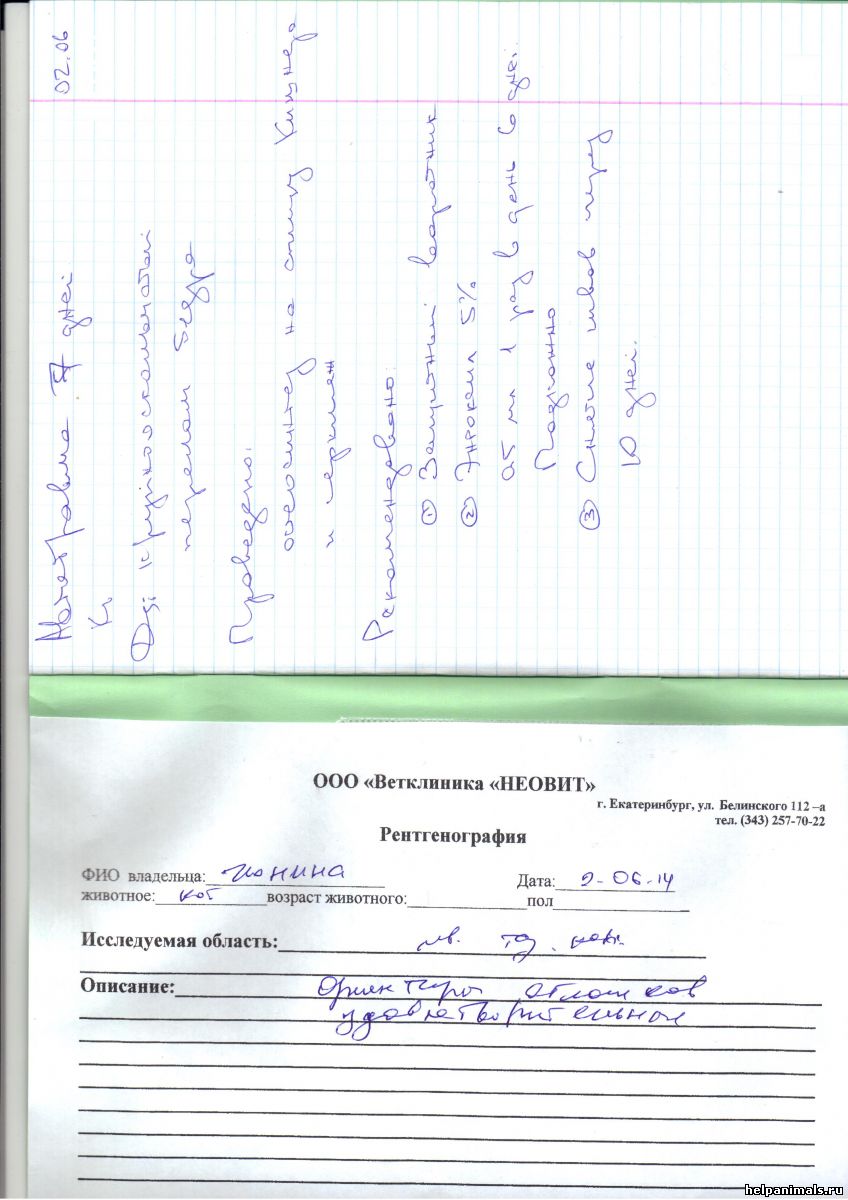 02.06
Автотравма 7 дней
Ds: крупнооскольчатый
перелом бедра
Проведено:
остеосинтез на спицу Киршнера
и серкляж
Рекомендовано:
① Защитный воротник
② Энроксил 5%
0,5 мл 1 раз в день 6 дней.
Подкожно
③ Снятие швов через
10 дней.
ООО «Ветклиника «НЕОВИТ»
г. Екатеринбург, ул. Белинского 112 –а
тел. (343) 257-70-22
Рентгенография
ФИО владельца: Ионина Дата: 2-06-14
животное: кот возраст животного: пол
Исследуемая область: лв. таз. кон.
Описание: отломков
удовлетворительное
helpanimals.ru